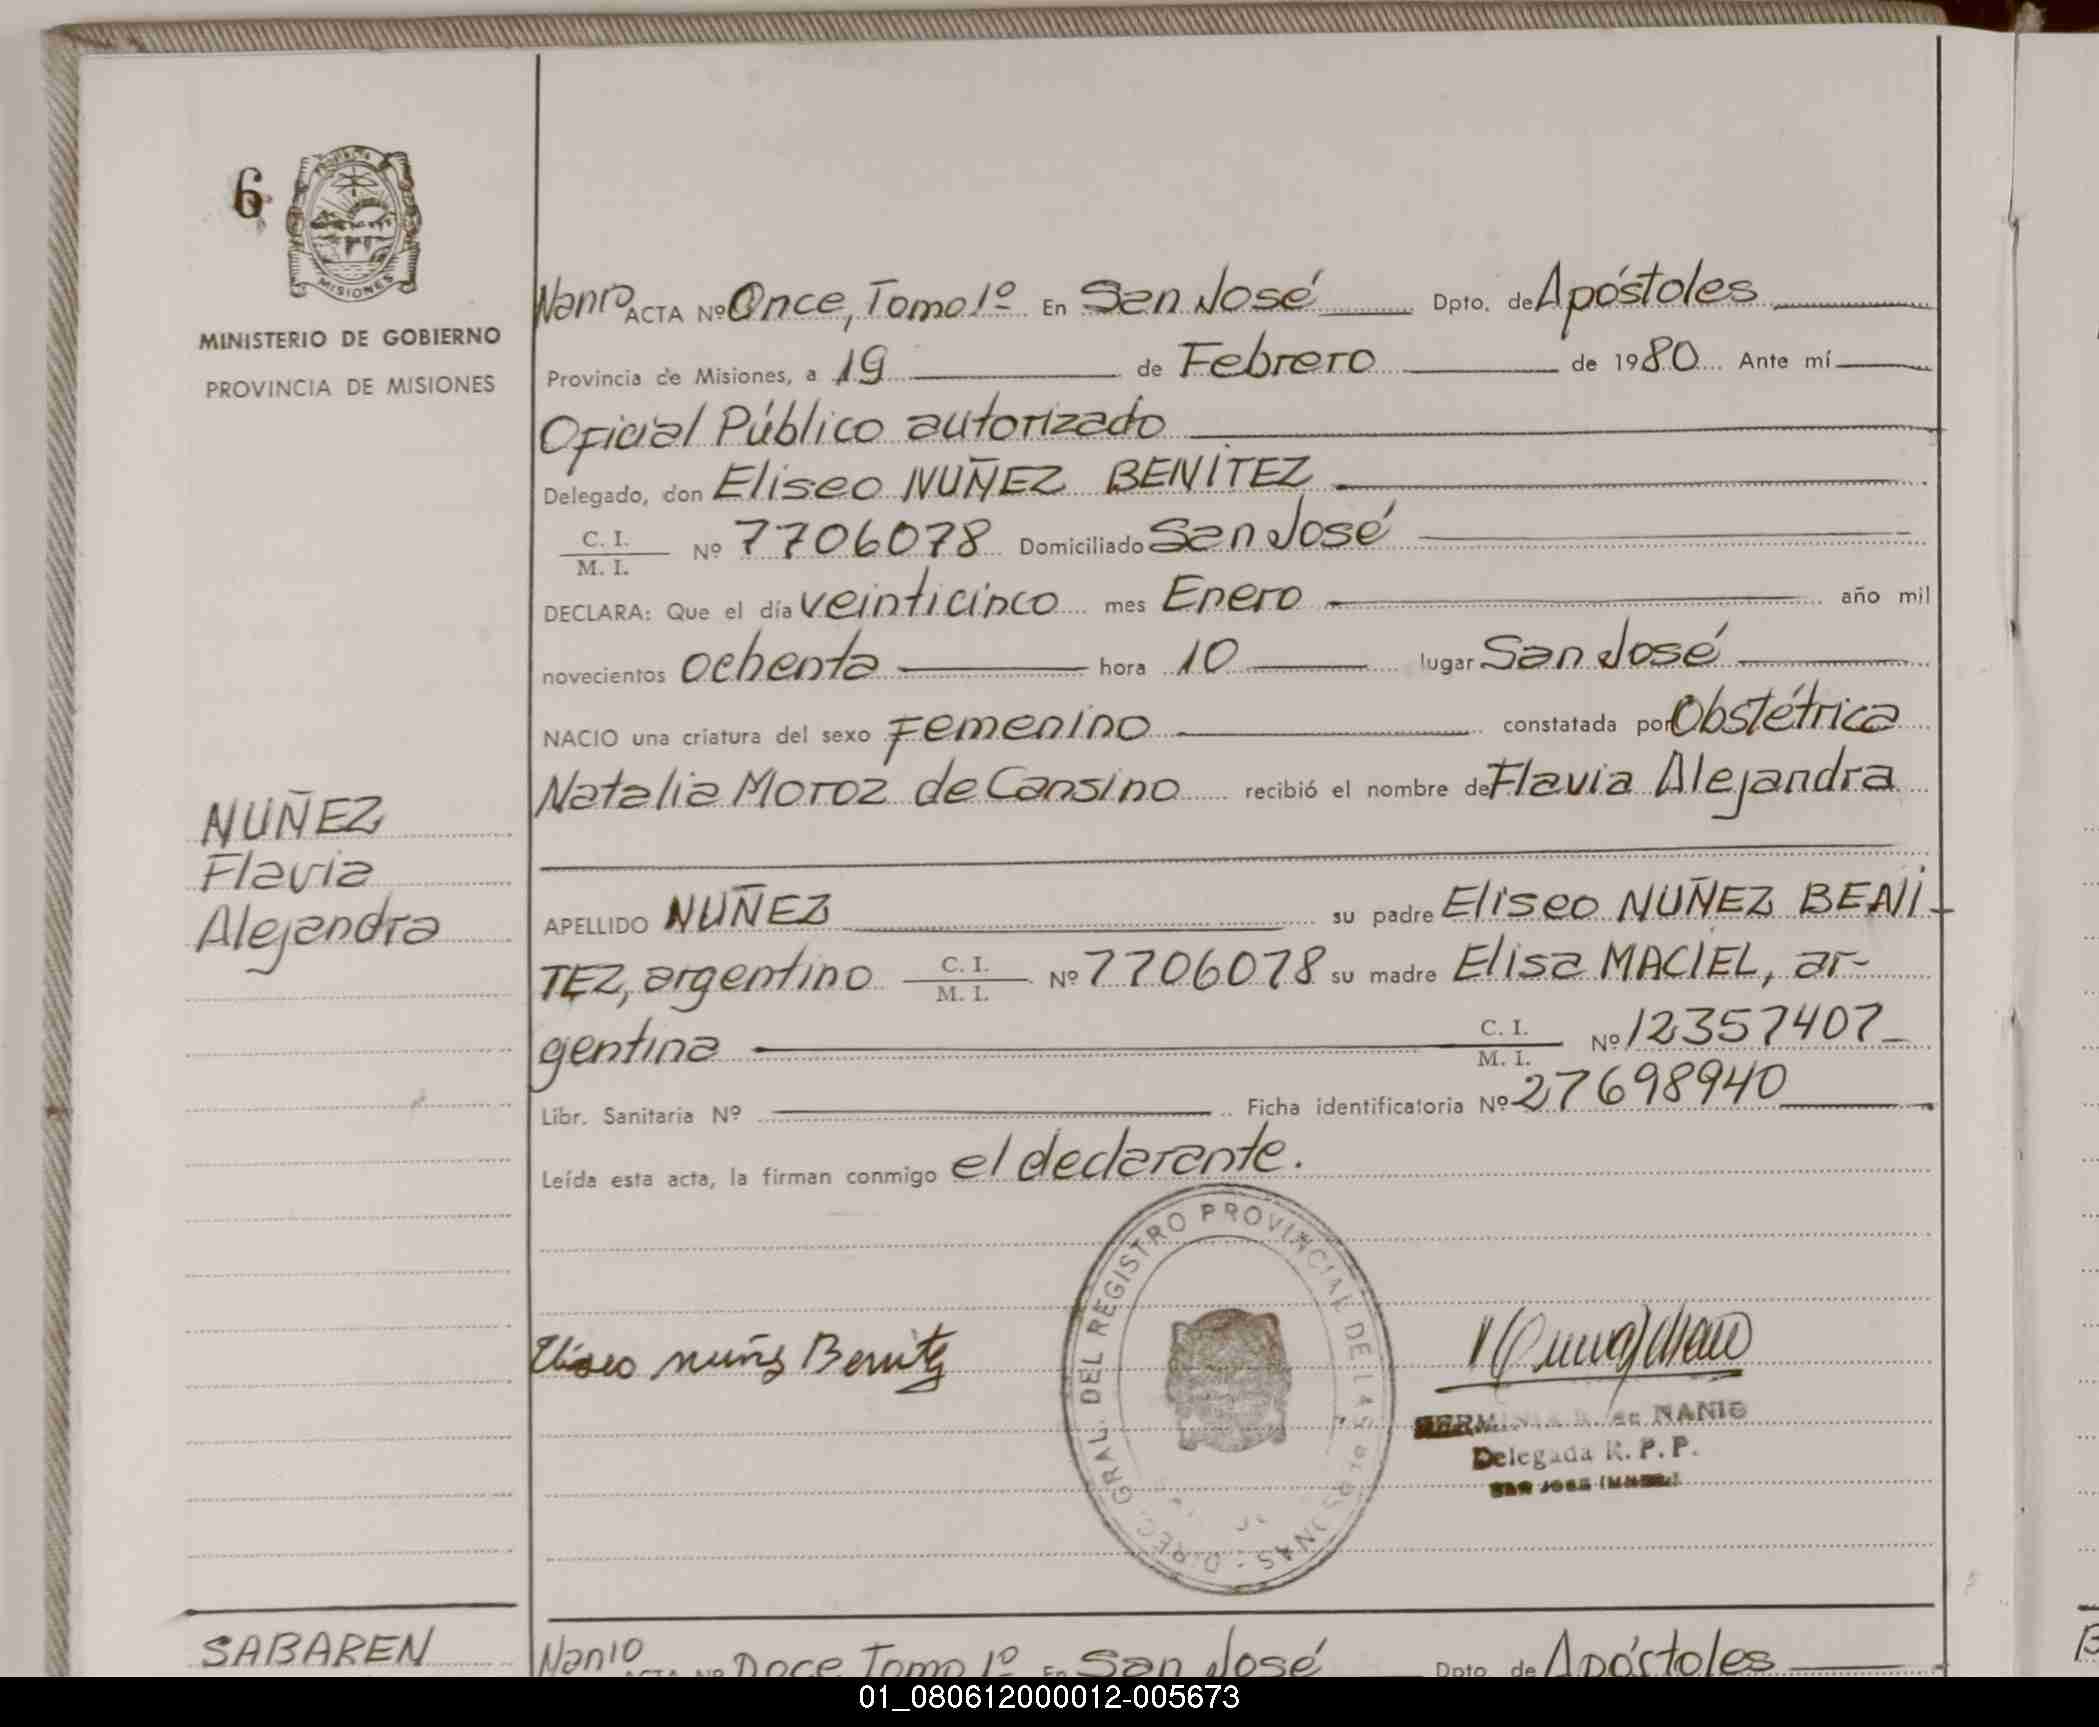 6
MISIONES
MINISTERIO DE GOBIERNO
PROVINCIA DE MISIONES
NUÑEZ
Flavia
Alejandra
ACTA Nº Once, Tomo 1º En San José Dpto. de Apóstoles
Provincia de Misiones, a 19 de Febrero de 1980 Ante mí
Oficial Público autorizado
Delegado, don Eliseo NUÑEZ BENITEZ
C. I.
M. I. Nº 7706078 Domiciliado San José
DECLARA: Que el día veinticinco mes Enero año mil
novecientos ochenta hora 10 lugar San José
NACIO una criatura del sexo Femenino constatada por Obstétrica
Natalia Moroz de Cansino recibió el nombre de Flavia Alejandra
APELLIDO NUÑEZ su padre Eliseo NUÑEZ BENI
TEZ, argentino C. I. M. I. Nº 7706078 su madre Elisa MACIEL, ar-
gentina C. I. M. I. Nº 12357407
Libr. Sanitaria Nº Ficha identificatoria Nº 27698940
Leída esta acta, la firman conmigo el declarante.
DIREC. GRAL. DEL REGISTRO PROVINCIAL DE LAS PERSONAS
Eliseo nuñz Benitz
de NANIO
Delegada R. P. P.
SAN JOSE
SABAREN
Nanio ACTA Nº Doce Tomo 1º En San José Dpto. de Apóstoles
01_080612000012-005673